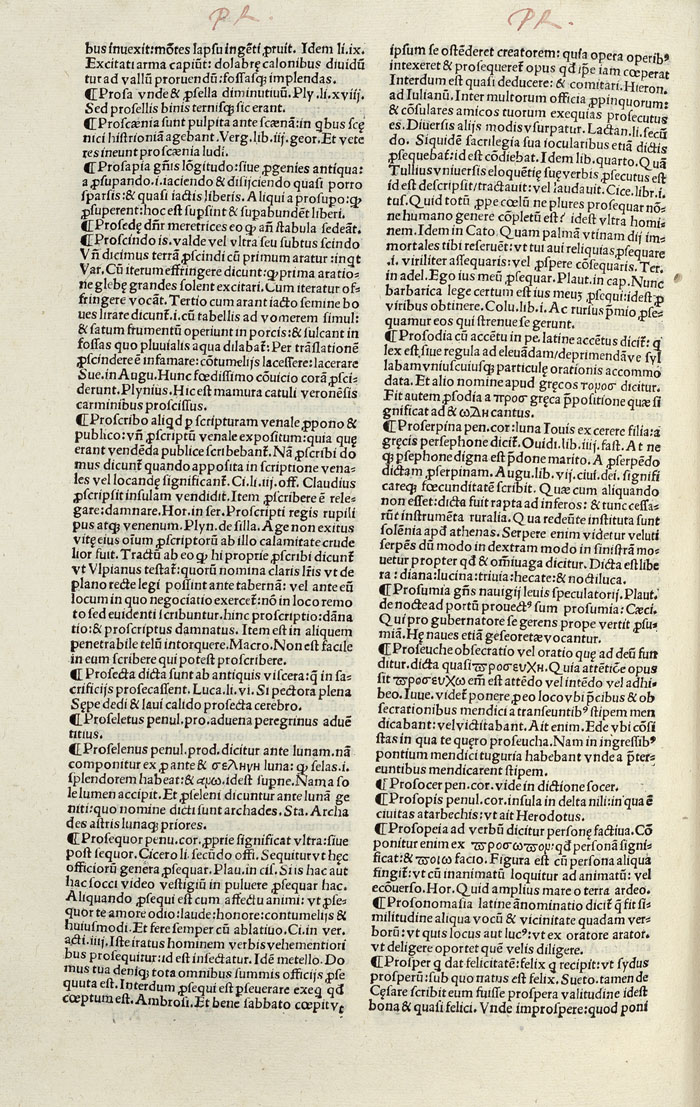 PR. PR.
bus inuexit:mōtes lapsu ingēti ꝓruit. Idem li.ix.
Excitati arma capiūt: dolabrę calonibus diuidū
tur ad vallū proruendū:fossasqʒ implendas.
¶Prosa vnde & ꝓsella diminutiuū. Ply.li.xviij.
Sed prosellis binis ternisqʒ sic erant.
¶Proscænia sunt pulpita ante scænā:in qbus scę
nici histrioniā agebant. Verg.lib.iij.geor. Et vete
res ineunt proscænia ludi.
¶Prosapia gn̄is lōgitudo:siue ꝓgenies antiqua:
a ꝓsupando.i.iaciendo & disijciendo quasi porro
sparsis:& quasi iactis liberis. Aliqui a prosupo:qꝫ
ꝓsuperent:hoc est supsint & supabundēt liberi.
¶Prosedę dn̄r meretrices eo qꝫ an̄ stabula sedeāt.
¶Proscindo is. valde vel vltra seu subtus scindo
Vn̄ dicimus terrā ꝓscindi cū primum aratur :inqt
Var. Cū iterum effringere dicunt:qꝫ prima aratio=
ne glebę grandes solent excitari. Cum iteratur of=
fringere vocāt. Tertio cum arant iacto semine bo
ues lirare dicunt̄.i.cū tabellis ad vomerem simul:
& satum frumentū operiunt in porcis:& sulcant in
fossas quo pluuialis aqua dilabat̄: Per trāslationē
ꝓscindere ē infamare: cōtumelijs lacessere: lacerare
Sue.in Augu. Hunc fœdissimo cōuicio corā ꝓsci=
derunt. Plynius. Hic est mamura catuli veronēsis
carminibus proscissus.
¶Proscribo aliqd p scripturam venale ꝓpono &
publico:vn̄ ꝓscriptū venale expositum:quia quę
erant vendēda publice scribebant̄. Nā ꝓscribi do
mus dicunt̄ quando apposita inscriptione vena=
les vel locandę significant̄. Ci.li.iij.off. Claudius
ꝓscripsit insulam vendidit. Item ꝓscribere ē rele=
gare:damnare. Hor.in ser. Proscripti regis rupili
pus atqʒ venenum. Plyn.de silla. Age non exitus
vitę eius oīum ꝓscriptorū ab illo calamitate crude
lior fuit. Tractū ab eo qꝫ hi proprie ꝓscribi dicunt̄
vt Vlpianus testat̄:quorū nomina claris lr̄is vt de
plano recte legi possint ante tabernā: vel ante eū
locum in quo negociatio exercet̄:nō in loco remo
to sed euidenti scribuntur.hinc proscriptio:dāna
tio:& proscriptus damnatus. Item est in aliquem
penetrabile telū intorquere. Macro. Non est facile
in eum scribere qui potest proscribere.
¶Prosecta dicta sunt ab antiquis viscera:qꝫ in sa=
crificijs prosecassent. Luca.li.vi. Si pectora plena
Sępe dedi & laui calido prosecta cerebro.
¶Proseletus penul.pro.aduena peregrinus aduē
titius.
¶Proselenus penul.prod. dicitur ante lunam.nā
componitur ex ꝓ ante & σεληνη luna: qꝫ selas.i.
splendorem habeat:& αιω.idest supne. Nam a so
le lumen accipit. Et ꝓseleni dicuntur ante lunā ge
niti:quo nomine dicti sunt archades. Sta. Archa
des astris lunaqʒ priores.
¶Prosequor penu.cor.ꝓprie significat vltra:siue
post sequor. Cicero li.secūdo offi. Sequitur vt hęc
officiorū genera ꝓsequar. Plau.in cis. Si is hac aut
hac socci video vestigiū in puluere ꝓsequar hac.
Aliquando ꝓsequi est cum affectu animi: vt ꝓse=
quor te amore odio:laude:honore:contumelijs &
huiusmodi. Et fere semper cū ablatiuo. Ci.in ver.
acti.iiij. Iste iratus hominem verbis vehementiori
bus prosequitur:id est insectatur. Idē metello. Do
mus tua deniqʒ tota omnibus summis officijs ꝓse
quuta est. Interdum ꝓsequi est ꝓseuerare exeq qd
cœptum est. Ambrosi. Et bene sabbato cœpit vt
ipsum se ostēderet creatorem: quia opera operib⁹
intexeret & prosequeret̄ opus qd ip̄e iam cœperat
Interdum est quasi deducere: & comitari. Hieron.
ad Iulianū. Inter multorum officia ꝓpinquorum:
& cōsulares amicos tuorum exequias prosecutus
es. Diuersis alijs modis vsurpatur. Lactan.li.secū
do. Siquidē sacrilegia sua iocularibus etiā dictis
ꝓsequebat̄:id est cōdiebat. Idem lib.quarto. Quā
Tullius vniuersis eloquētię suę verbis ꝓsecutus est
id est descripsit/tractauit:vel laudauit. Cice.libr.i.
tus. Quid totū ꝓpe cœlū ne plures prosequar nō=
ne humano genere cōpletū est? idest vltra homi=
nem. Idem in Cato. Quam palmā vtinam dij im=
mortales tibi referuēt: vt tui aui reliquias ꝓsequare
.i. viriliter assequaris: vel ꝓspere cōsequaris. Ter.
in adel. Ego ius meū ꝓsequar. Plaut.in cap. Nunc
barbarica lege certum est ius meuʒ ꝓsequi:idest ꝓ
viribus obtinere. Colu.lib.i. Ac rursus p̄mio ꝓse=
quamur eos qui strenue se gerunt.
¶Prosodia cū accētu in pe. latine accētus dicit̄: q
lex est/siue regula ad eleuādam/deprimendāve syl
labam vniuscuiusqʒ particulę orationis accommo
data. Et alio nomine apud gręcos τομοσ dicitur.
Fit autem ꝓsodia a προσ gręca p̄positione quæ si
gnificat ad & ωδη cantus.
¶Proserpina pen.cor:luna Iouis ex cerere filia:a
gręcis persephone dicit̄. Ouidi.lib.iiij.fast. At ne
qʒ ꝓsephone digna est p̄done marito. A ꝓserpēdo
dictam ꝓserpinam. Augu.lib.vij.ciui.dei. signifi
careqʒ fœcunditatē scribit. Quæ cum aliquando
non esset:dicta fuit rapta ad inferos: & tunc cessa=
rūt instrumēta ruralia. Qua redeūte instituta sunt
solēnia apd athenas. Serpere enim videtur veluti
serpēs dū modo in dextram modo in sinistrā mo=
uetur propter qd & omiuaga dicitur. Dicta est libe
ra : diana:lucina:triuia:hecate:& noctiluca.
¶Prosumia gn̄s nauigij leuis speculatorij. Plaut.
de nocte ad portū prouect⁹ sum prosumia: Cæci.
Qui pro gubernatore se gerens prope vertit ꝓsu=
miā. Hę naues etiā geseoretæ vocantur.
¶Proseuche obsecratio vel oratio quę ad deū fun
ditur. dicta quasi προσευχη. Quia attētiōe opus
sit προσευχω em̄ est attēdo vel intēdo vel adhi=
beo. Iuue. videt̄ ponere ꝓ eo loco vbi p̄cibus & ob
secrationibus mendici a transeuntib⁹ stipem men
dicabant: vel victitabant. Ait enim. Ede vbi cōsi
stas in qua te quęro proseucha. Nam in ingressib⁹
pontium mendici tuguria habebant vnde a p̄ter=
euntibus mendicarent stipem.
¶Prosocer pen.cor.vide in dictione socer.
¶Prosopis penul.cor.insula in delta nili:in qua ē
ciuitas atarbechis:vt ait Herodotus.
¶Prosopopeia ad verbū dicitur personę factiua. Cō
ponitur enim ex προσωπον:qd personā signi=
ficat:& ποιω facio. Figura est cū persona aliqua
fingit̄:vt cū inanimatū loquitur ad animatū: vel
ecōuerso. Hor. Quid amplius mare o terra ardeo.
¶Prosonomasia latine ānominatio dicit̄ q fit si=
militudine aliqua vocū & vicinitate quadam ver=
borū:vt quis locus aut luc⁹:vt ex oratore arator.
vt deligere oportet quē velis diligere.
¶Prosper q dat felicitatē:felix q recipit:vt sydus
prosperū:sub quo natus est felix. Sueto.tamen de
Cęsare scribit eum fuisse prospera valitudine idest
bona & quasi felici. Vnde improspere:quod poni